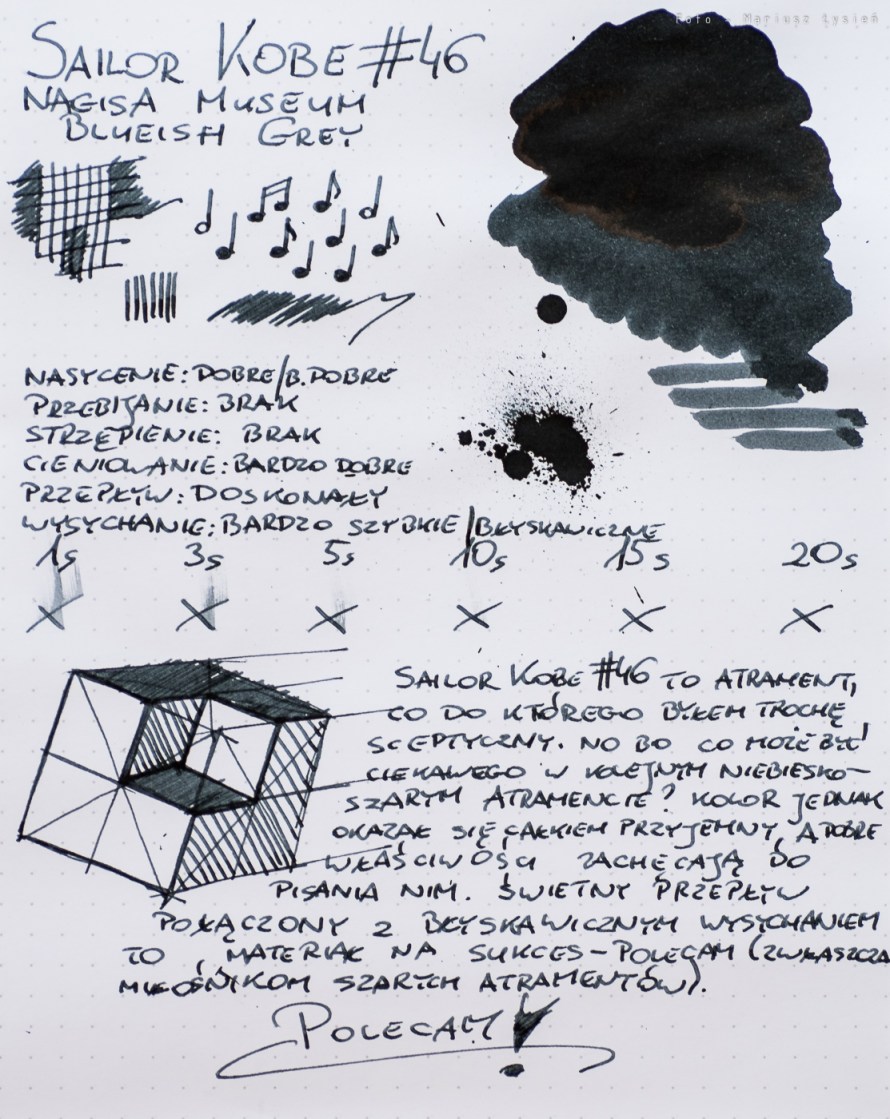 Foto - Mariusz Łysień
SAILOR KOBE #46
NAGISA MUSEUM
BLUEISH GREY
NASYCENIE: DOBRE/B.DOBRE
PRZEBIJANIE: BRAK
STRZĘPIENIE: BRAK
CIENIOWANIE: BARDZO DOBRE
PRZEPŁYW: DOSKONAŁY
WYSYCHANIE: BARDZO SZYBKIE/BŁYSKAWICZNE
1s 3s 5s 10s 15s 20s
SAILOR KOBE #46 TO ATRAMENT,
CO DO KTÓREGO BYŁEM TROCHĘ
SCEPTYCZNY. NO BO CO MOŻE BYĆ
CIEKAWEGO W KOLEJNYM NIEBIESKO-
SZARYM ATRAMENCIE? KOLOR JEDNAK
OKAZAŁ SIĘ CAŁKIEM PRZYJEMNY, A DOBRE
WŁAŚCIWOŚCI ZACHĘCAJĄ DO
PISANIA NIM. ŚWIETNY PRZEPŁYW
POŁĄCZONY Z BŁYSKAWICZNYM WYSYCHANIEM
TO MATERIAŁ NA SUKCES-POLECAM (ZWŁASZCZA
MIŁOŚNIKOM SZARYCH ATRAMENTÓW).
POLECAM!